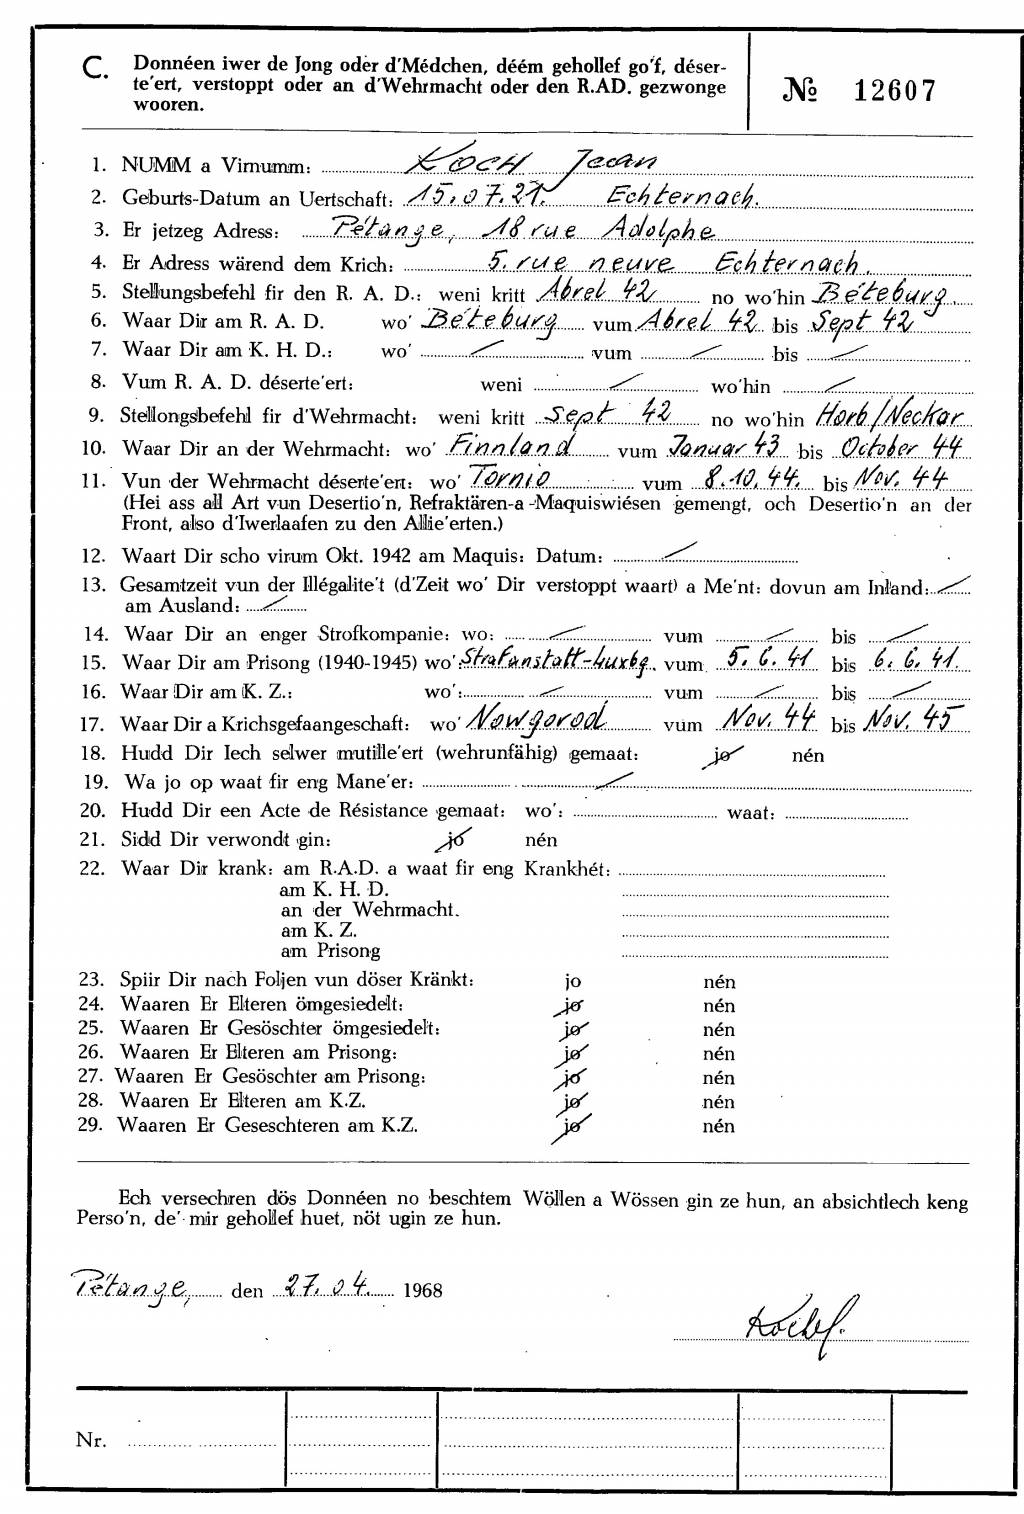 C. Donnéen iwer de Jong oder d'Médchen, déém gehollef go'f, déser-
te'ert, verstoppt oder an d'Wehrmacht oder den R.AD. gezwonge
wooren.
№ 12607
1. NUMM a Virnumm: KOCH Jean
2. Geburts-Datum an Uertschaft: 15.07.21. Echternach.
3. Er jetzeg Adress: Pétange, 18 rue Adolphe
4. Er Adress wärend dem Krich: 5. rue neuve Echternach.
5. Stellungsbefehl fir den R. A. D.: weni kritt Abrel 42 no wo'hin Béteburg.
6. Waar Dir am R. A. D. wo' Béteburg vum Abrel 42 bis Sept 42
7. Waar Dir am K. H. D.: wo' / vum / bis /
8. Vum R. A. D. déserte'ert: weni / wo'hin /
9. Stellongsbefehl fir d'Wehrmacht: weni kritt Sept 42 no wo'hin Horb/Neckar
10. Waar Dir an der Wehrmacht: wo' Finnland vum Januar 43 bis October 44
11. Vun der Wehrmacht déserte'ert: wo' Tornio vum 8.10.44. bis Nov. 44
(Hei ass all Art vun Desertio'n, Refraktären-a -Maquiswiésen gemengt, och Desertio'n an der
Front, also d'Iwerlaafen zu den Allie'erten.)
12. Waart Dir scho virum Okt. 1942 am Maquis: Datum: /
13. Gesamtzeit vun der Illégalite't (d'Zeit wo' Dir verstoppt waart) a Me'nt: dovun am Inland: /
am Ausland: /
14. Waar Dir an enger Strofkompanie: wo: / vum / bis /
15. Waar Dir am Prisong (1940-1945) wo': Strafanstatt-Luxbg. vum 5.6.41 bis 6.6.41.
16. Waar Dir am K. Z.: wo': / vum / bis /
17. Waar Dir a Krichsgefaangeschaft: wo' Nowgorod vum Nov. 44 bis Nov. 45
18. Hudd Dir Iech selwer mutille'ert (wehrunfähig) gemaat: jo nén
19. Wa jo op waat fir eng Mane'er: /
20. Hudd Dir een Acte de Résistance gemaat: wo': waat:
21. Sidd Dir verwondt gin: jo nén
22. Waar Dir krank: am R.A.D. a waat fir eng Krankhét:
am K. H. D.
an der Wehrmacht.
am K. Z.
am Prisong
23. Spiir Dir nach Foljen vun döser Kränkt: jo nén
24. Waaren Er Elteren ömgesiedelt: jo nén
25. Waaren Er Gesöschter ömgesiedelt: jo nén
26. Waaren Er Elteren am Prisong: jo nén
27. Waaren Er Gesöschter am Prisong: jo nén
28. Waaren Er Elteren am K.Z. jo nén
29. Waaren Er Geseschteren am K.Z. jo nén
Ech versechren dös Donnéen no beschtem Wöllen a Wössen gin ze hun, an absichtlech keng
Perso'n, de' mir gehollef huet, nöt ugin ze hun.
Pétange, den 27.04. 1968
Nr.